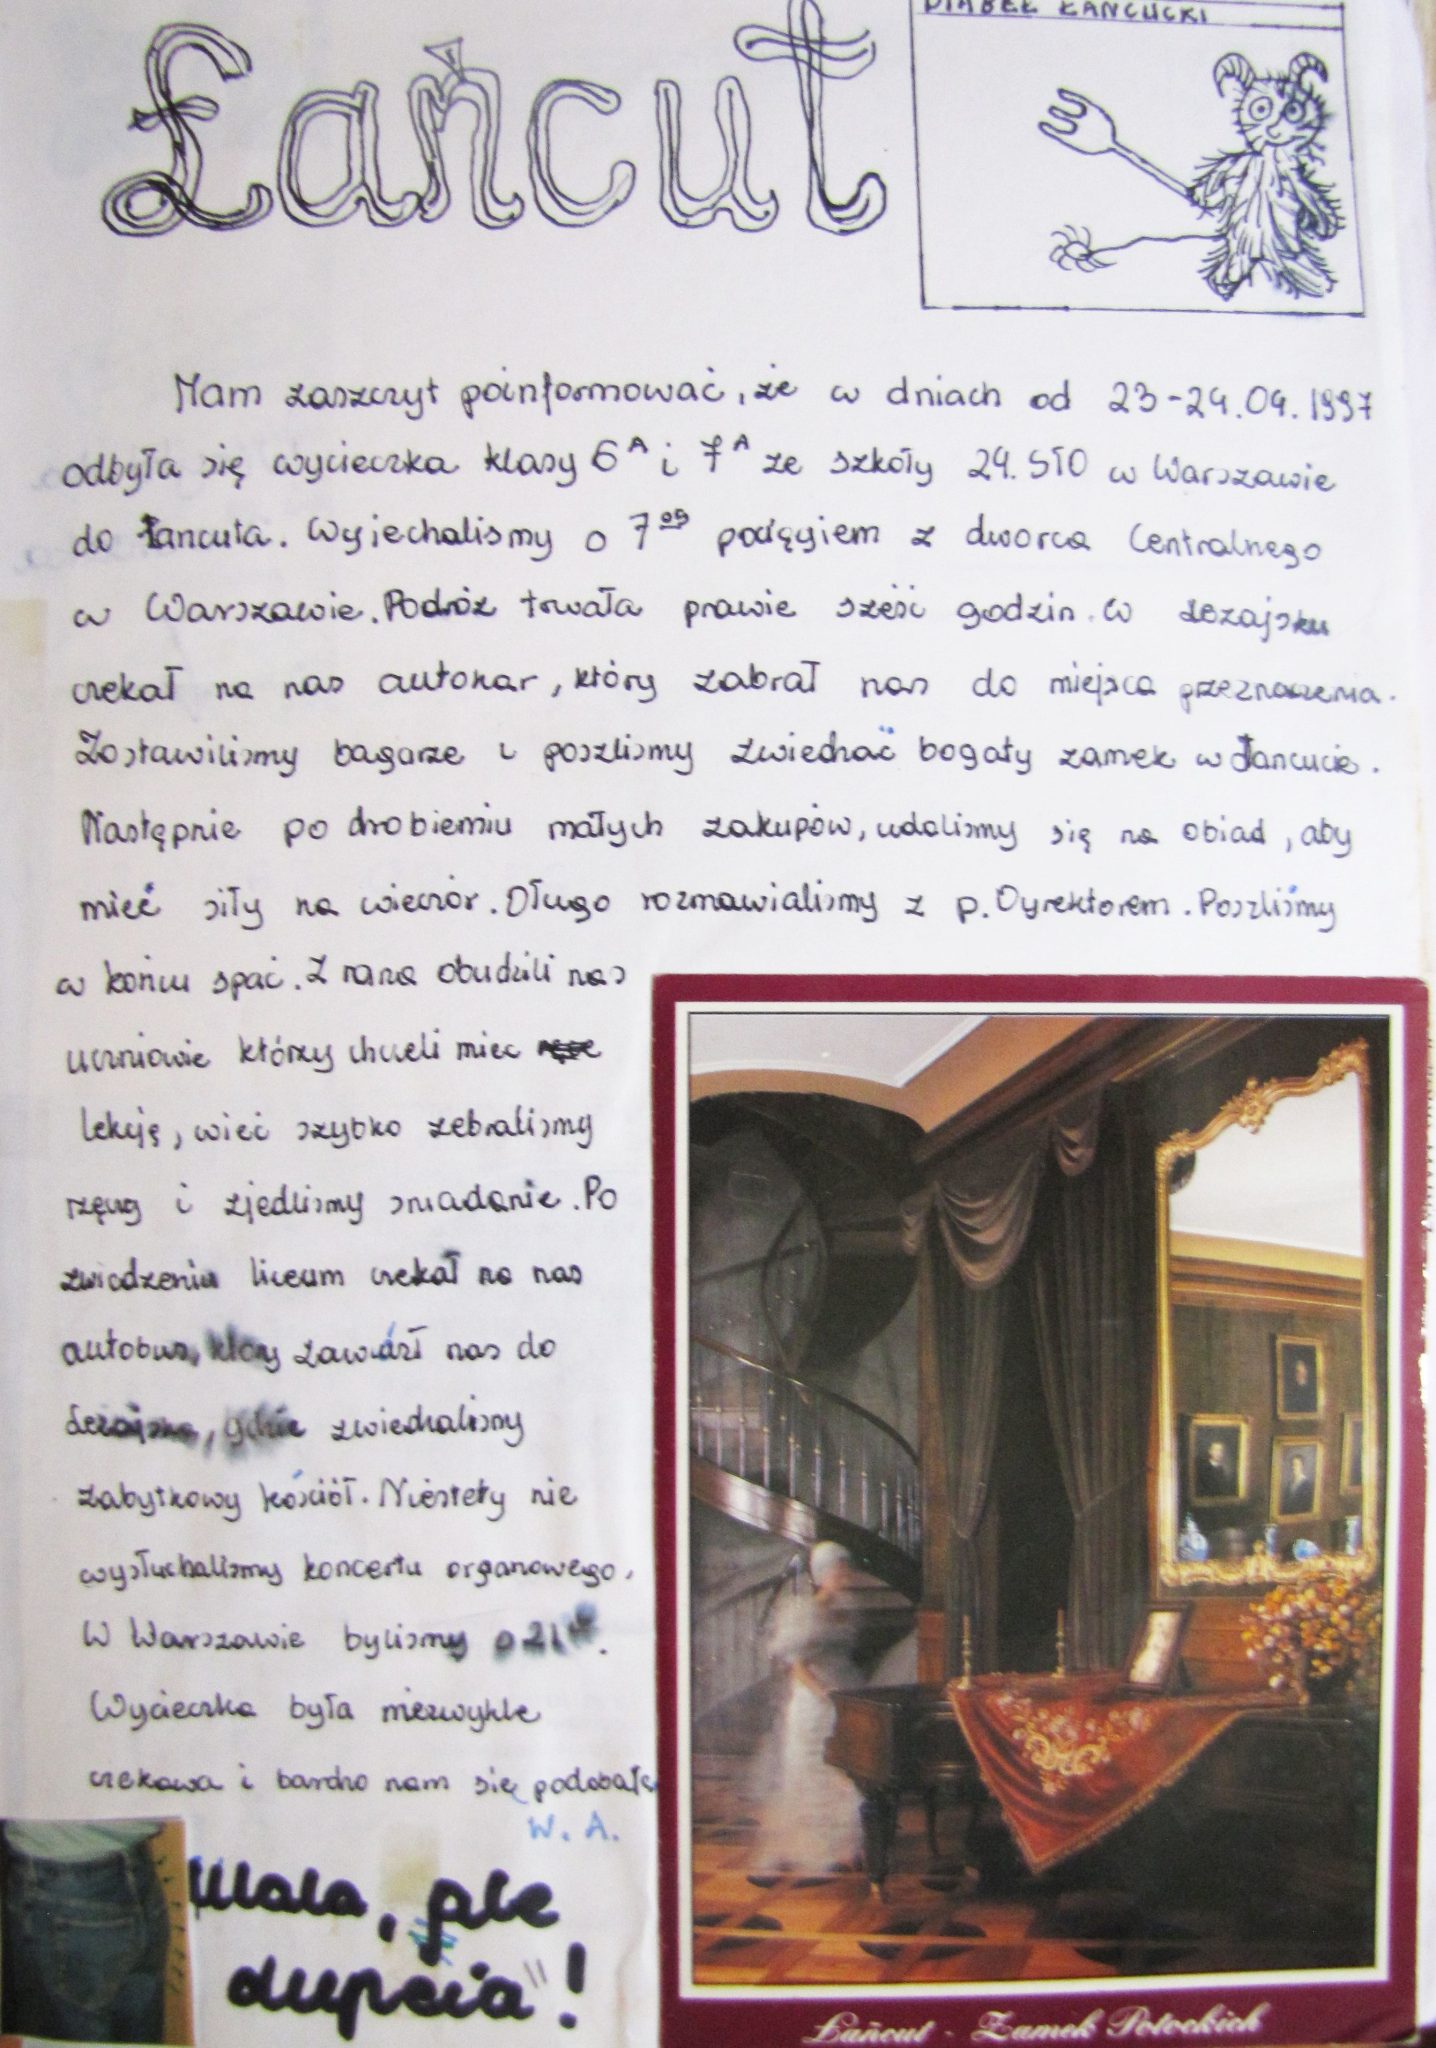 Łańcut
DIABEŁ ŁAŃCUCKI
Mam zaszczyt poinformować, że w dniach od 23-24.04.1997
odbyła się wycieczka klasy 6A i 7A ze szkoły 24. STO w Warszawie
do Łancuta. Wyjechalismy o 7⁰⁰ pociągiem z dworca Centralnego
w Warszawie. Podróż trwała prawie sześć godzin. W Leżajsku
czekał na nas autokar, który zabrał nas do miejsca przeznaczenia.
Zostawilismy bagarze i poszlismy zwiedzać bogaty zamek w Łancucie.
Następnie po drobieniu małych zakupów, udalismy się na obiad, aby
mieć siły na wieczór. Długo rozmawialismy z p. Dyrektorem. Poszliśmy
w końcu spać. Z rana obudzili nas
uczniowie którzy chcieli miec
lekcję, wieć szybko zebralismy
rzęczy i zjedlismy sniadanie. Po
zwiedzeniu liceum czekał na nas
autobus, który zawiózł nas do
Leżajska, gdzie zwiedzalismy
zabytkowy kościół. Niestety nie
wysłuchalismy koncertu organowego.
W Warszawie bylismy o 21
Wycieczka była niezwykle
ciekawa i bardzo nam się podobała
W. A.
Mała, ale
dupcia"!
Łańcut - Zamek Potockich